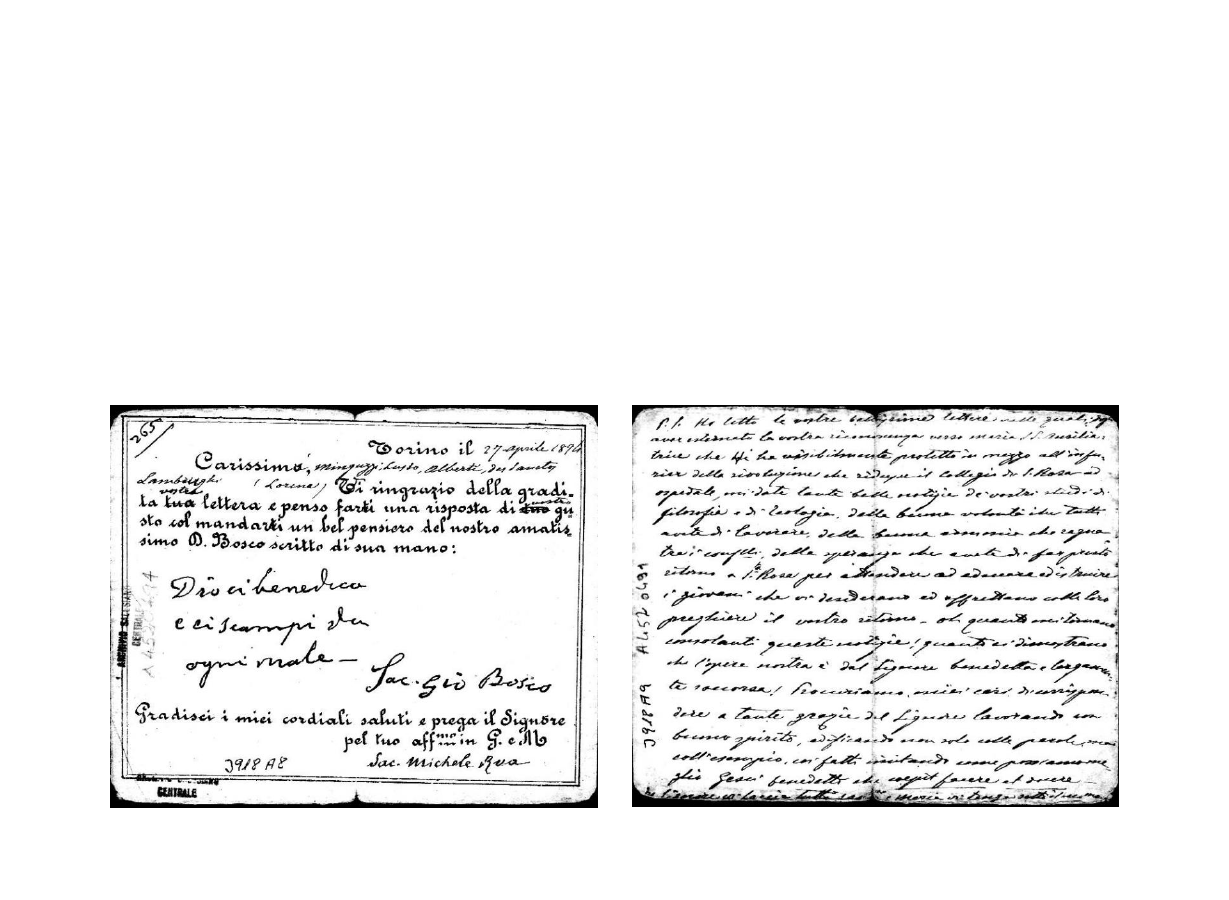 265
Torino il 27 aprile 1894
Carissimo, Minguzzi Lusto, Alberti, des Santos
Lambenghi (Lorena) Ti ringrazio della gradi-
vostra
ta tua lettera e penso farti una risposta di tuo gu
vostro
sto col mandarti un bel pensiero del nostro amatis-
simo D. Bosco scritto di sua mano:
Dio ci benedica
e ci scampi da
ogni male –
Sac. Gio Bosco
Gradisci i miei cordiali saluti e prega il Signore
pel tuo aff.mo in G. e M
Sac. Michele Rua
3918 A8
ARCHIVIO SALESIANO
CENTRALE
CENTRALE
P.S. Ho letto le vostre bellissime lettere, nelle quali
aver esternato la vostra riconoscenza verso Maria SS. Ausilia-
trice che vi ha visibilmente protetto in mezzo all'infu-
riar della rivoluzione che ridusse il collegio di S. Rosa ad
ospedale, mi date tante belle notizie de' vostri studi di
filosofia e di teologia, della buona volontà che tutti
avete di lavorare, della buona armonia che regna
tra i confll. della speranza che avete di far presto
ritorno a S.a Rosa per attendere ad educare ed istruire
i giovani che vi desiderano ed affrettano colle loro
preghiere il vostro ritorno – oh quanto mi tornano
consolanti queste notizie! quanto ci dimostrano
che l'opera nostra è dal Signore benedetta e largamen-
te soccorsa! Procuriamo, miei cari, di corrispon-
dere a tante grazie del Signore lavorando con
buono spirito, edificando non solo colle parole, ma
coll'esempio, in fatti imitando come possiamo me-
glio Gesù benedetto che coepit facere et docere
Il Signore vi faccia tutti e Maria vi tenga tutti
A4520491
3918 A9